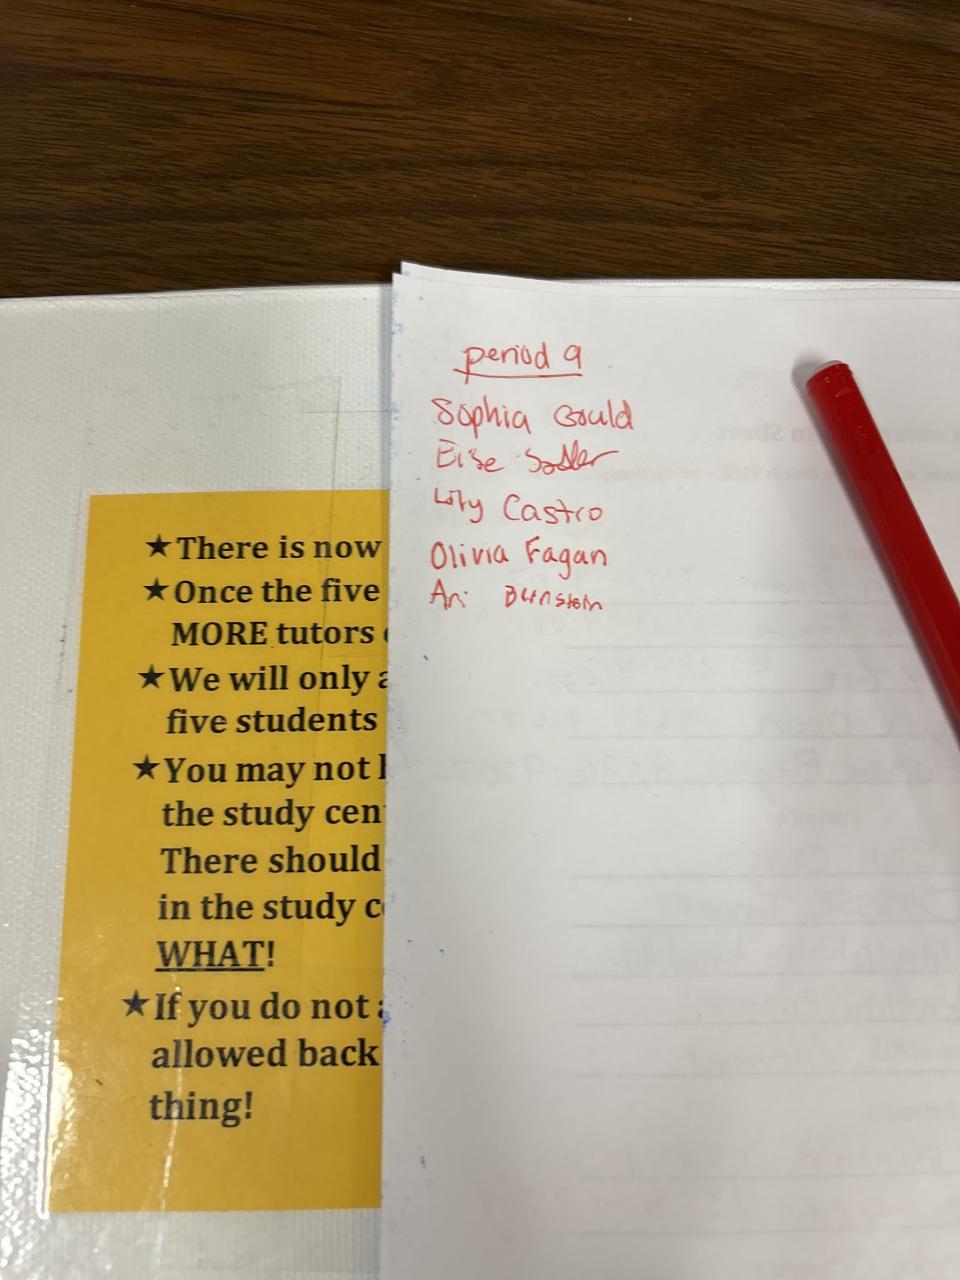 period 9
Sophia Gould
Elise Sadler
Lily Castro
Olivia Fagan
Ari Bernstein
★There is now
★Once the five
MORE tutors
★We will only a
five students
★You may not
the study cen
There should
in the study c
WHAT!
★If you do not
allowed back
thing!